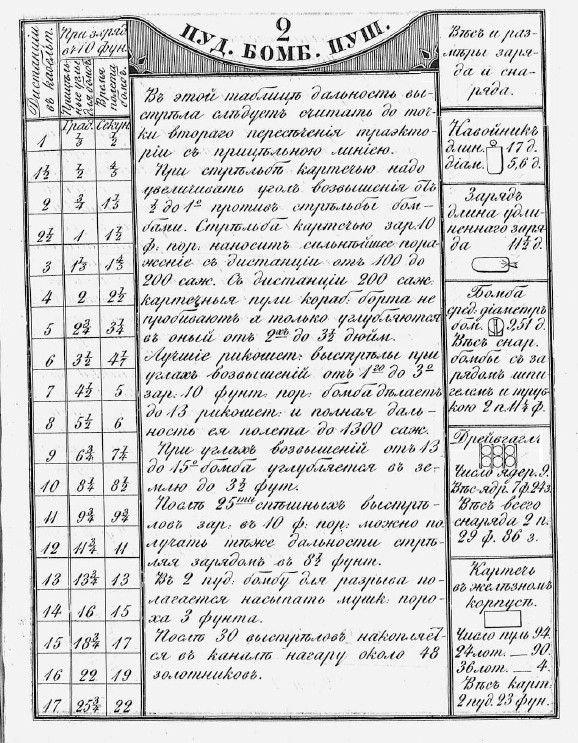 2
ПУД. БОМБ. ПУШ.
Дистанціи въ кабельт.
При заряд. въ 10 фун.
Прицѣльные углы для бомб.
Время полета бомбъ.
Град. Секун.
1 1/3 1/2
1 1/2 1/2 4/5
2 3/4 1 1/5
2 1/2 1 1 1/2
3 1 1/3 1 4/5
4 2 2 1/2
5 2 3/4 3 1/4
6 3 1/2 4 1/7
7 4 1/2 5
8 5 1/2 6
9 6 3/4 7 1/4
10 8 1/4 8 1/2
11 9 3/4 9 3/4
12 11 3/4 11
13 13 3/4 13
14 16 15
15 18 3/4 17
16 22 19
17 25 3/4 22
Въ этой таблицѣ дальность вы-
стрѣла слѣдуетъ считать до точ-
ки втораго пересѣченія траэкто-
ріи съ прицѣльною линіею.
При стрѣльбѣ картечью надо
увеличивать уголъ возвышенія отъ
1/2 до 1° противъ стрѣльбы бом-
бами. Стрѣльба картечью зар. 10
ф: пор: наноситъ сильнѣйшее пора-
женіе съ дистанціи отъ 100 до
200 саж. Съ дистанціи 200 саж.
картечныя пули кораб. борта не
пробиваютъ а только углубляются
въ оный отъ 2хъ до 3 1/2 дюйм.
Лучшіе рикошет: выстрѣлы при
углахъ возвышеній отъ 1го до 3°
зар: 10 фунт: пор: бомба дѣлаетъ
до 13 рикошет: и полная даль-
ность ея полета до 1300 саж.
При углахъ возвышеній отъ 13
до 15° бомба углубляется въ зе-
млю до 3 1/2 фут.
Послѣ 25ти спѣшныхъ выстрѣ-
ловъ зар: въ 10 ф: пор: можно по-
лучать тѣже дальности стрѣ-
ляя зарядомъ въ 8 1/2 фунт.
Въ 2 пуд: бомбу для разрыва по-
лагается насыпать мушк: поро-
ха 3 фунта.
Послѣ 30 выстрѣловъ, накопляет-
ся въ каналѣ нагару около 48
золотниковъ.
Вѣсъ и раз-
мѣры заря-
да и сна-
ряда.
Навойникъ
длин. 17 д.
діам. 5,6 д.
Зарядъ
длина удли-
неннаго заря-
да 11 1/4 д.
Бомба
сред. діаметръ
бом. 9,51 д.
Вѣсъ снар.
бомбы съ за-
рядомъ шпи-
гелемъ и труб-
кою 2 п. 11 1/4 ф.
Дрейфгагелъ
Число ядер. 9.
Вѣсъ ядр. 7 ф. 24 з.
Вѣсъ всего
снаряда 2 п.
29 ф. 86 з.
Картечь
въ желѣзномъ
корпусѣ.
Число пуль 94.
24 лот. — 90.
36 лот. — 4.
Вѣсъ карт:
2 пуд. 23 фун.